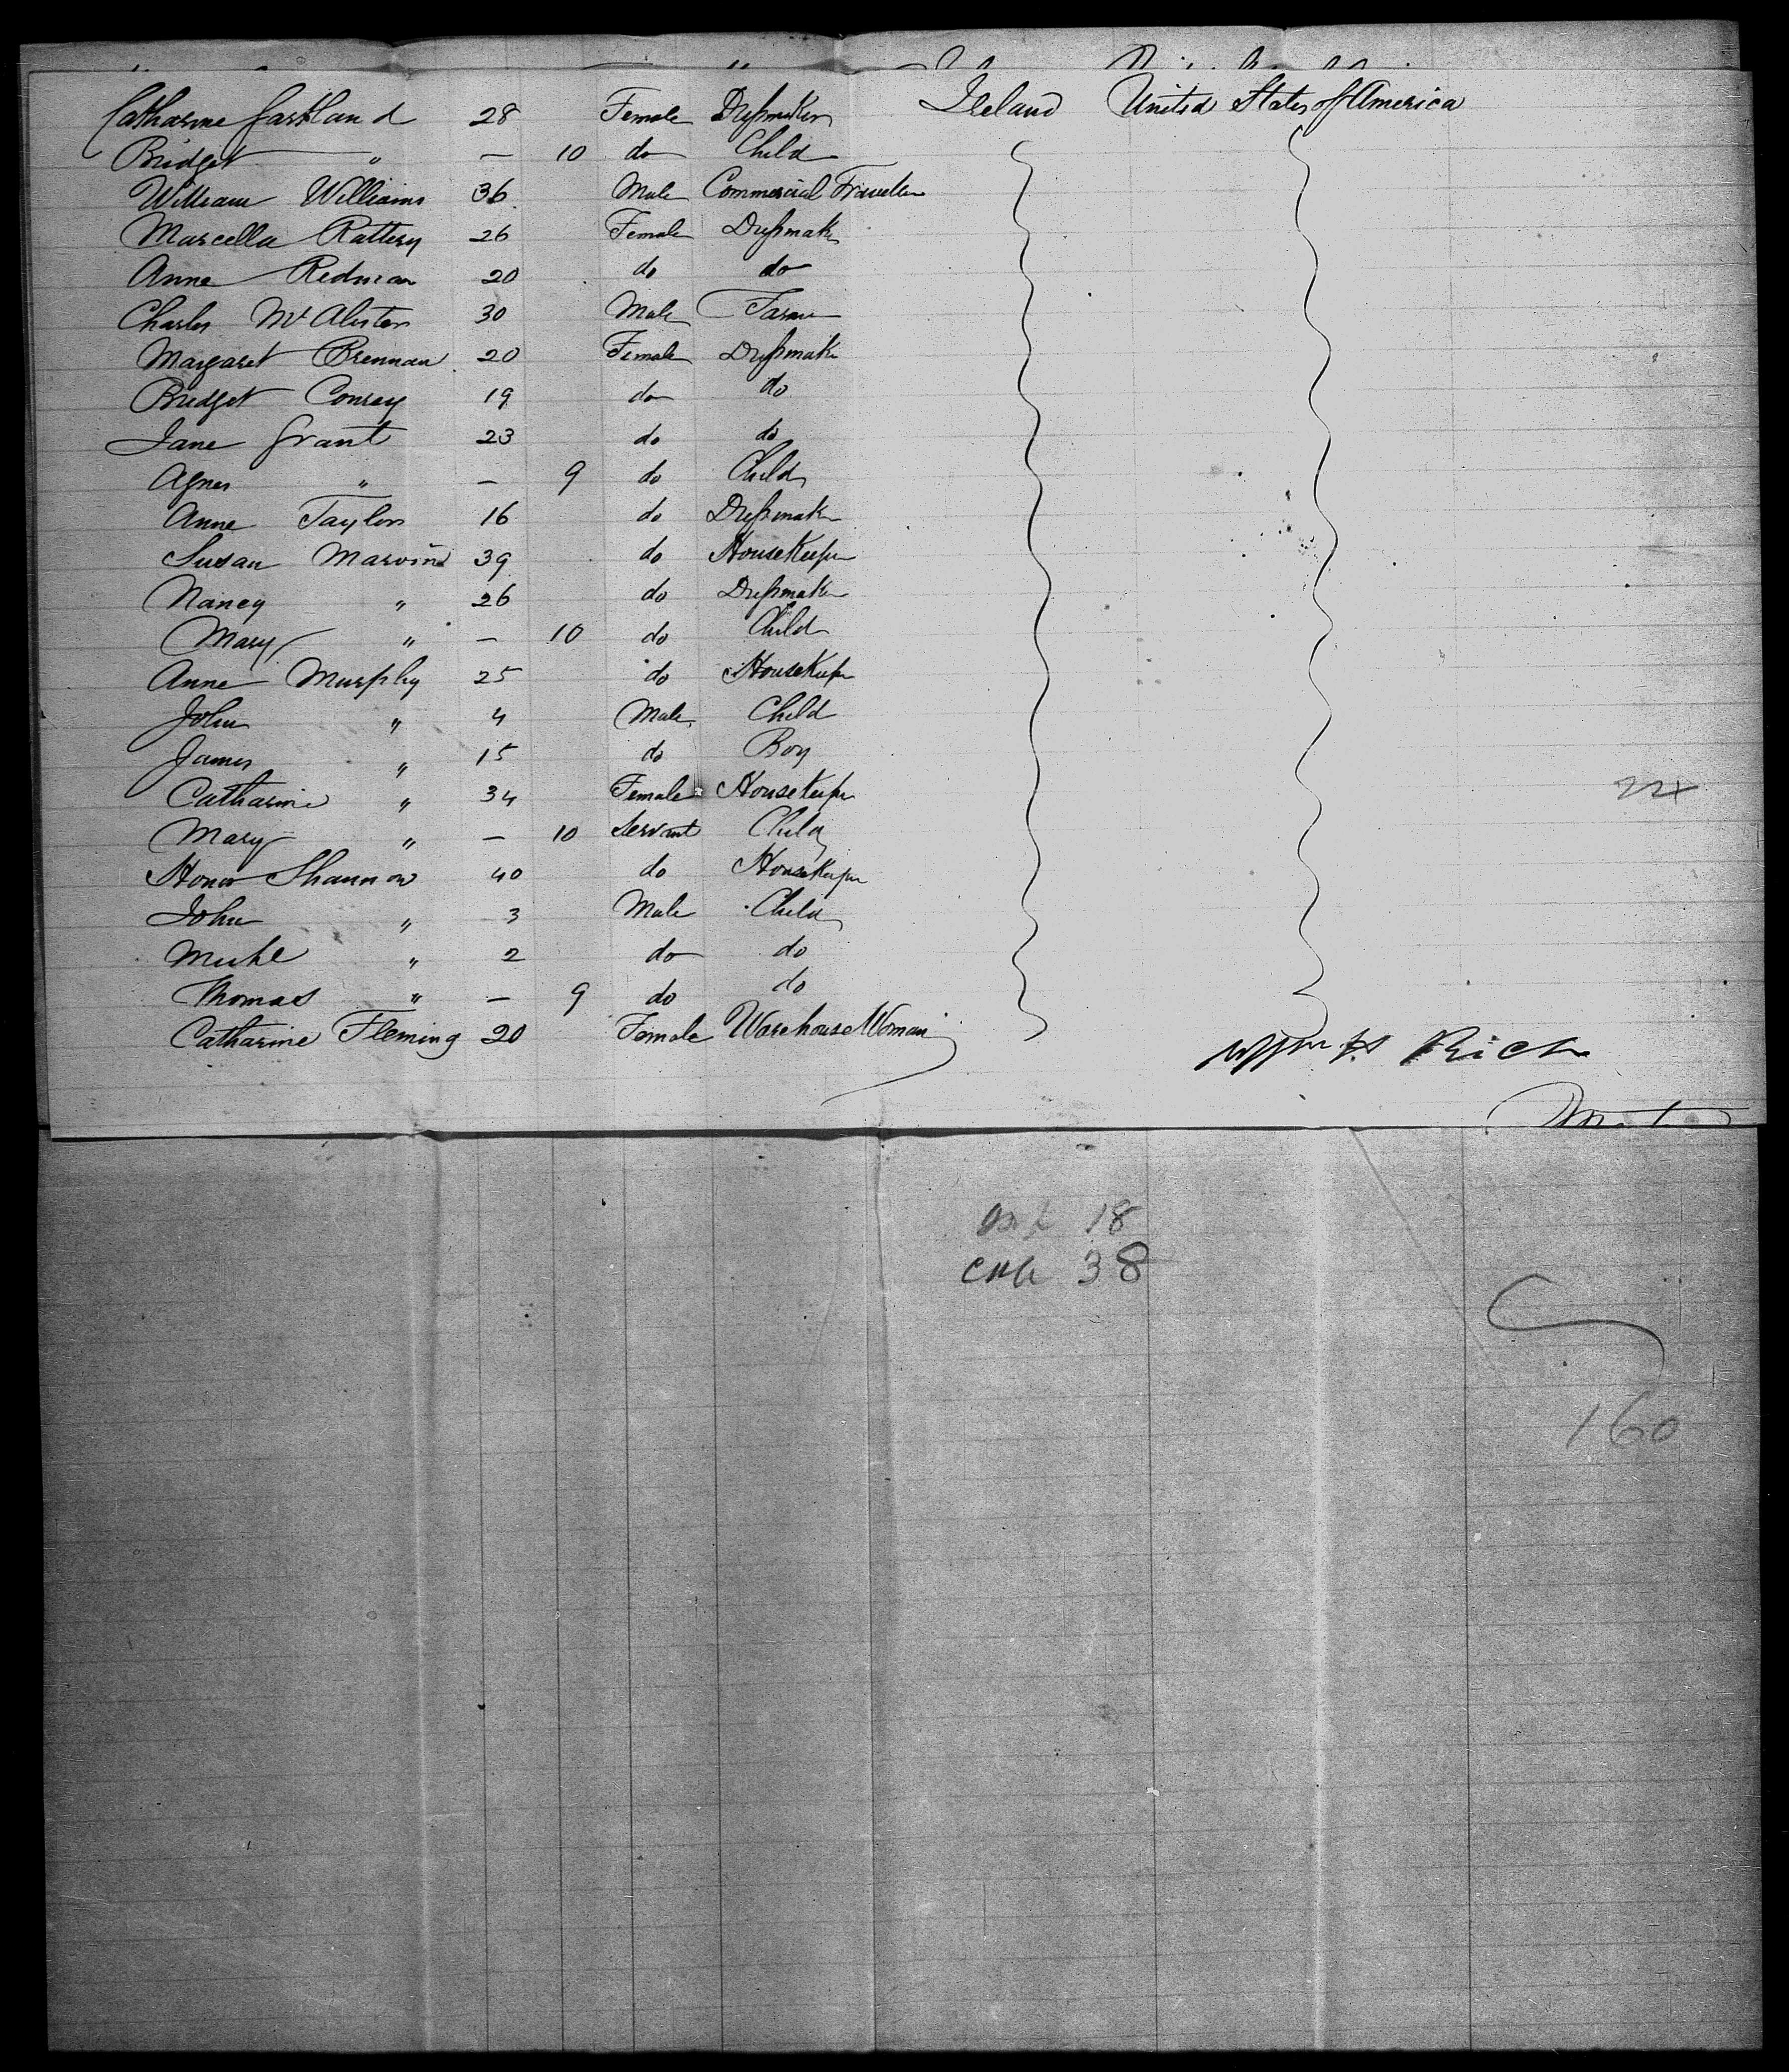 Catharine Gartland 28 Female Dressmaker Ireland United States of America
Bridget " — 10 do Child
William Williams 36 Male Commercial Traveller
Marcella Rattery 26 Female Dressmaker
Anne Redman 20 do do
Charles McAlister 30 Male Farmer
Margaret Brennan 20 Female Dressmaker
Bridget Conrey 19 do do
Jane Grant 23 do do
Agnes " — 9 do Child
Anne Taylor 16 do Dressmaker
Susan Marvin 39 do HouseKeeper
Nancy " 26 do Dressmaker
Mary " — 10 do Child
Anne Murphy 25 do HouseKeeper
John " 4 Male Child
James " 15 do Boy
Catharine " 34 Female HouseKeeper
Mary " — 10 Servant Child
Honor Shannon 40 do HouseKeeper
John " 3 Male Child
Michl " 2 do do
Thomas " — 9 do do
Catharine Fleming 20 Female WarehouseWoman
Rich
18
38
160